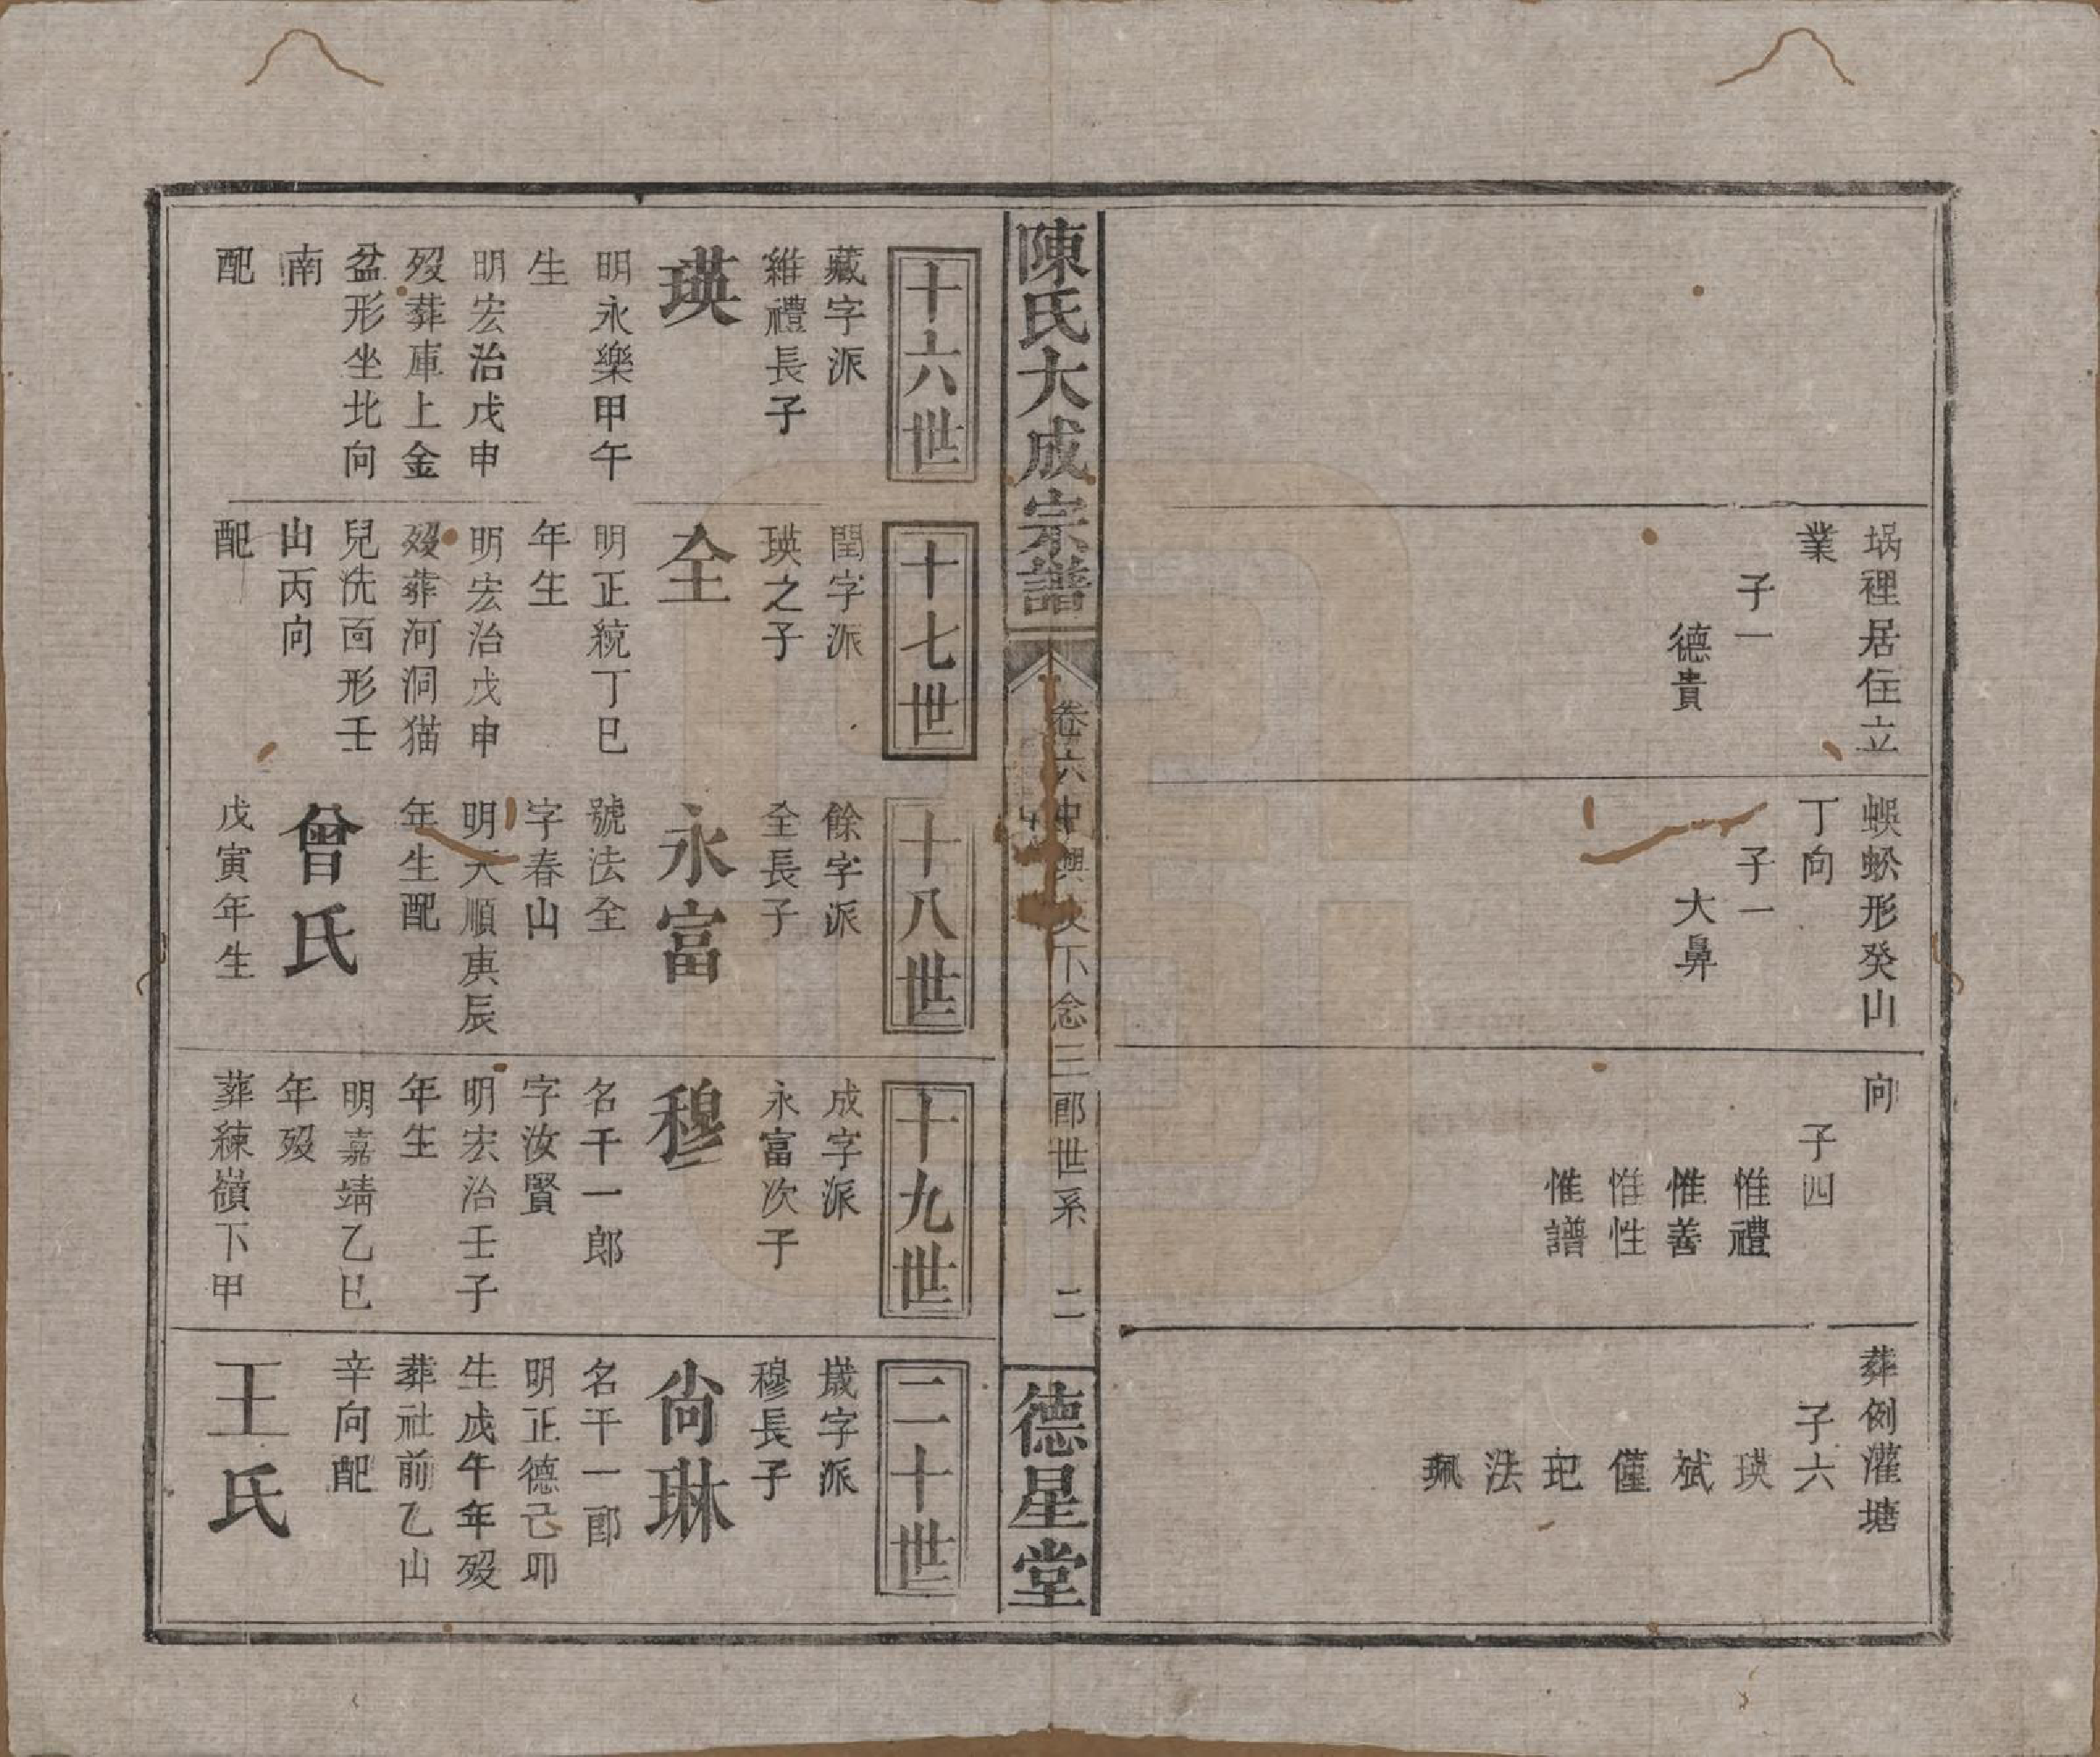 塥裡居住立
業
子一
德貴
蜈蚣形癸山
丁向
子一
大鼻
向
子四
惟禮
惟善
惟性
惟譜
葬例灌塘
子六
瑛
斌
僅
玘
法
珮
陳氏大成宗譜
卷六中興下念三郎世系 二
德星堂
十六世
藏字派
維禮長子
瑛
明永樂甲午
生
明宏治戊申
歿葬庫上金
盆形坐北向
南
配
十七世
閏字派
瑛之子
全
明正統丁巳
年生
明宏治戊申
歿葬河洞猫
兒洗面形壬
山丙向
配
十八世
餘字派
全長子
永富
號法全
字春山
明天順庚辰
年生配
曾氏
戊寅年生
十九世
成字派
永富次子
穆
名千一郎
字汝賢
明宏治壬子
年生
明嘉靖乙巳
年歿
葬練嶺下甲
二十世
歲字派
穆長子
尚琳
名千一郎
明正德己卯
生戊午年歿
葬社前乙山
辛向配
王氏